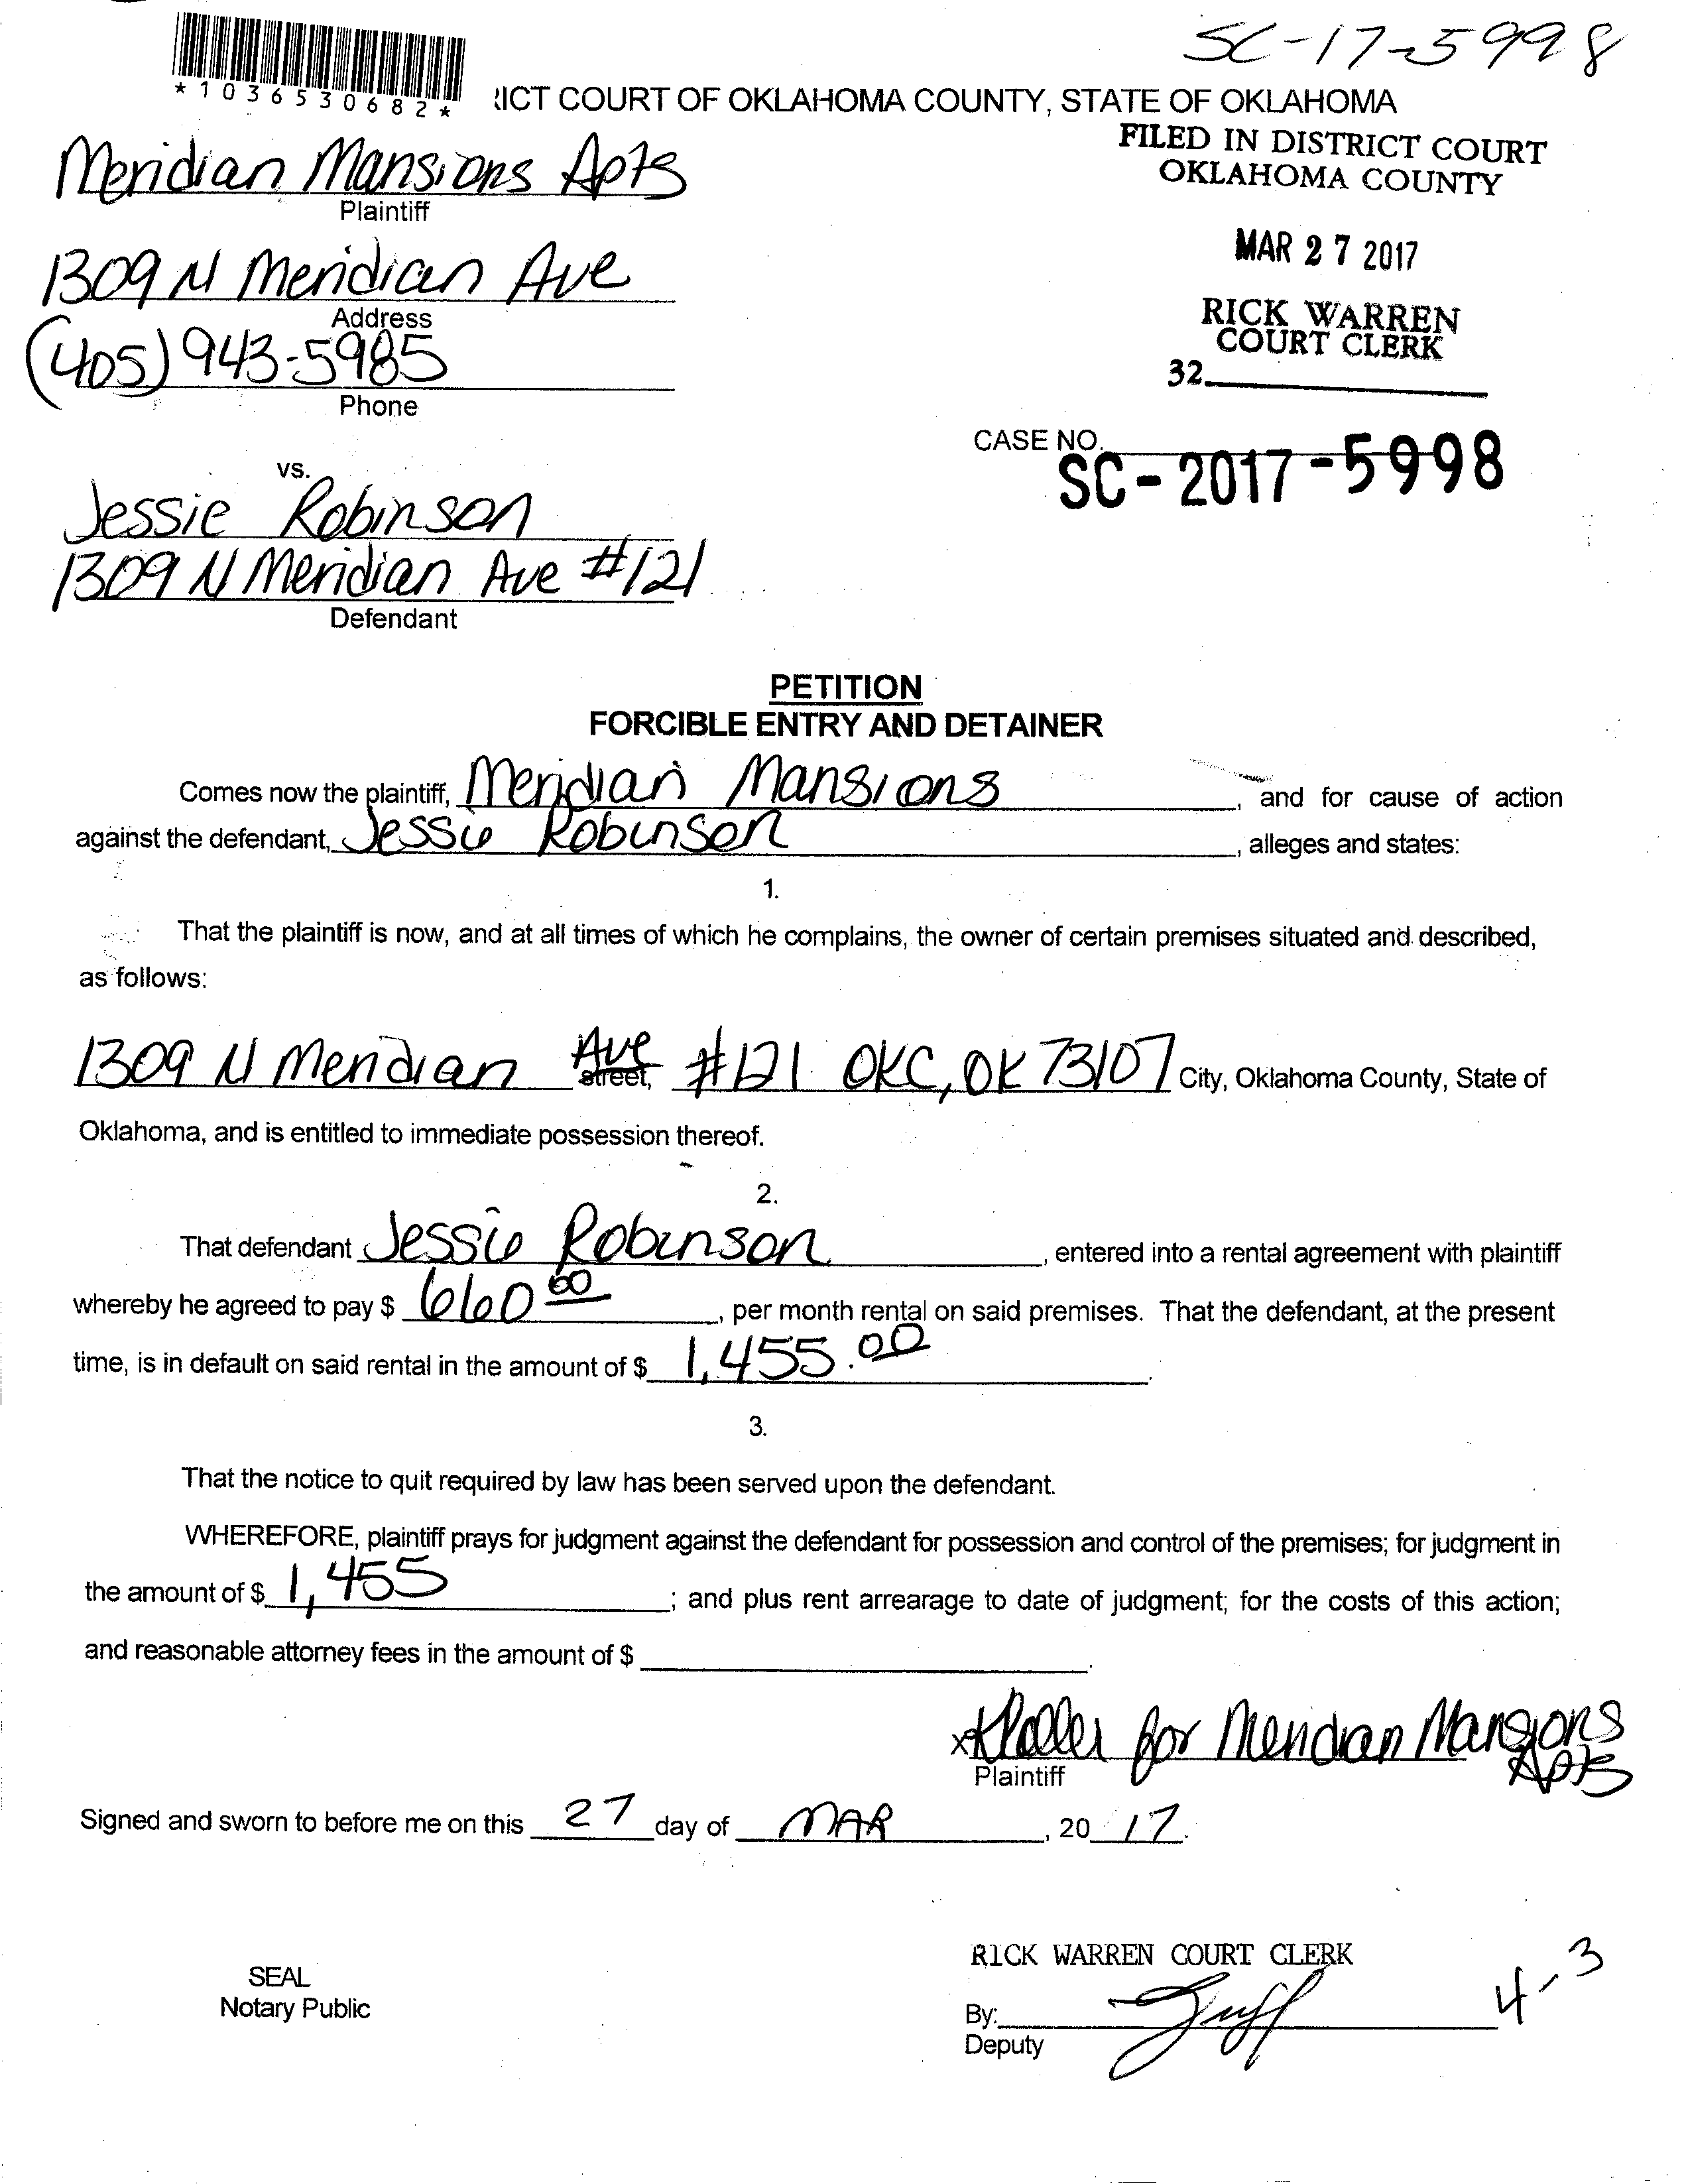 SC-17-5998
*1036530682*
RICT COURT OF OKLAHOMA COUNTY, STATE OF OKLAHOMA
FILED IN DISTRICT COURT
OKLAHOMA COUNTY
Meridian Mansions Apts
Plaintiff
MAR 27 2017
1309 N Meridian Ave
Address
RICK WARREN
COURT CLERK
(405) 943-5985
32
Phone
CASE NO.
SC-2017-5998
vs.
Jessie Robinson
1309 N Meridian Ave #121
Defendant
PETITION
FORCIBLE ENTRY AND DETAINER
Comes now the plaintiff, Meridian Mansions, and for cause of action
against the defendant, Jessie Robinson, alleges and states:
1.
That the plaintiff is now, and at all times of which he complains, the owner of certain premises situated and described,
as follows:
1309 N Meridian Ave street, #121 OKC, OK 73107 City, Oklahoma County, State of
Oklahoma, and is entitled to immediate possession thereof.
2.
That defendant Jessie Robinson, entered into a rental agreement with plaintiff
whereby he agreed to pay $ 660 00, per month rental on said premises. That the defendant, at the present
time, is in default on said rental in the amount of $ 1,455.00.
3.
That the notice to quit required by law has been served upon the defendant.
WHEREFORE, plaintiff prays for judgment against the defendant for possession and control of the premises; for judgment in
the amount of $ 1,455; and plus rent arrearage to date of judgment; for the costs of this action;
and reasonable attorney fees in the amount of $ .
x for Meridian Mansions
Apts
Plaintiff
Signed and sworn to before me on this 27 day of MAR, 20 17.
RICK WARREN COURT CLERK
4-3
SEAL
Notary Public
By:
Deputy